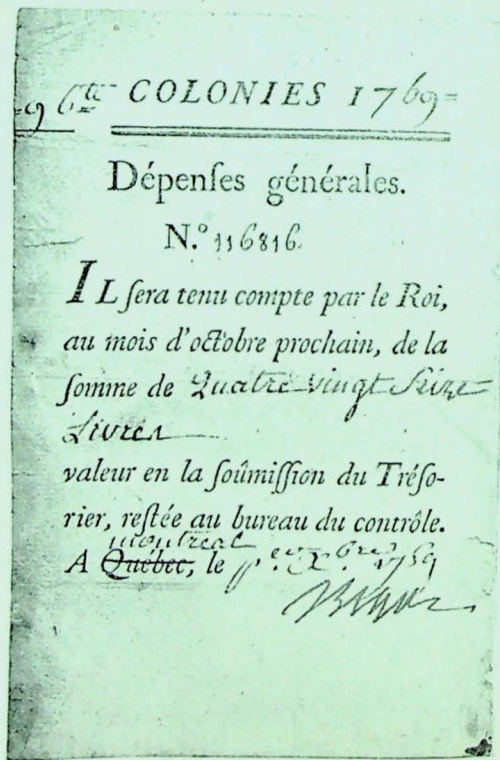 96 tt COLONIES 1769
Dépenſes générales.
N.º 116816
IL ſera tenu compte par le Roi,
au mois d'octobre prochain, de la
ſomme de Quatre vingt Seize
Livres
valeur en la ſoûmiſſion du Tréſo-
rier, reſtée au bureau du contrôle.
montreal
A Québec, le 1759
Bigot